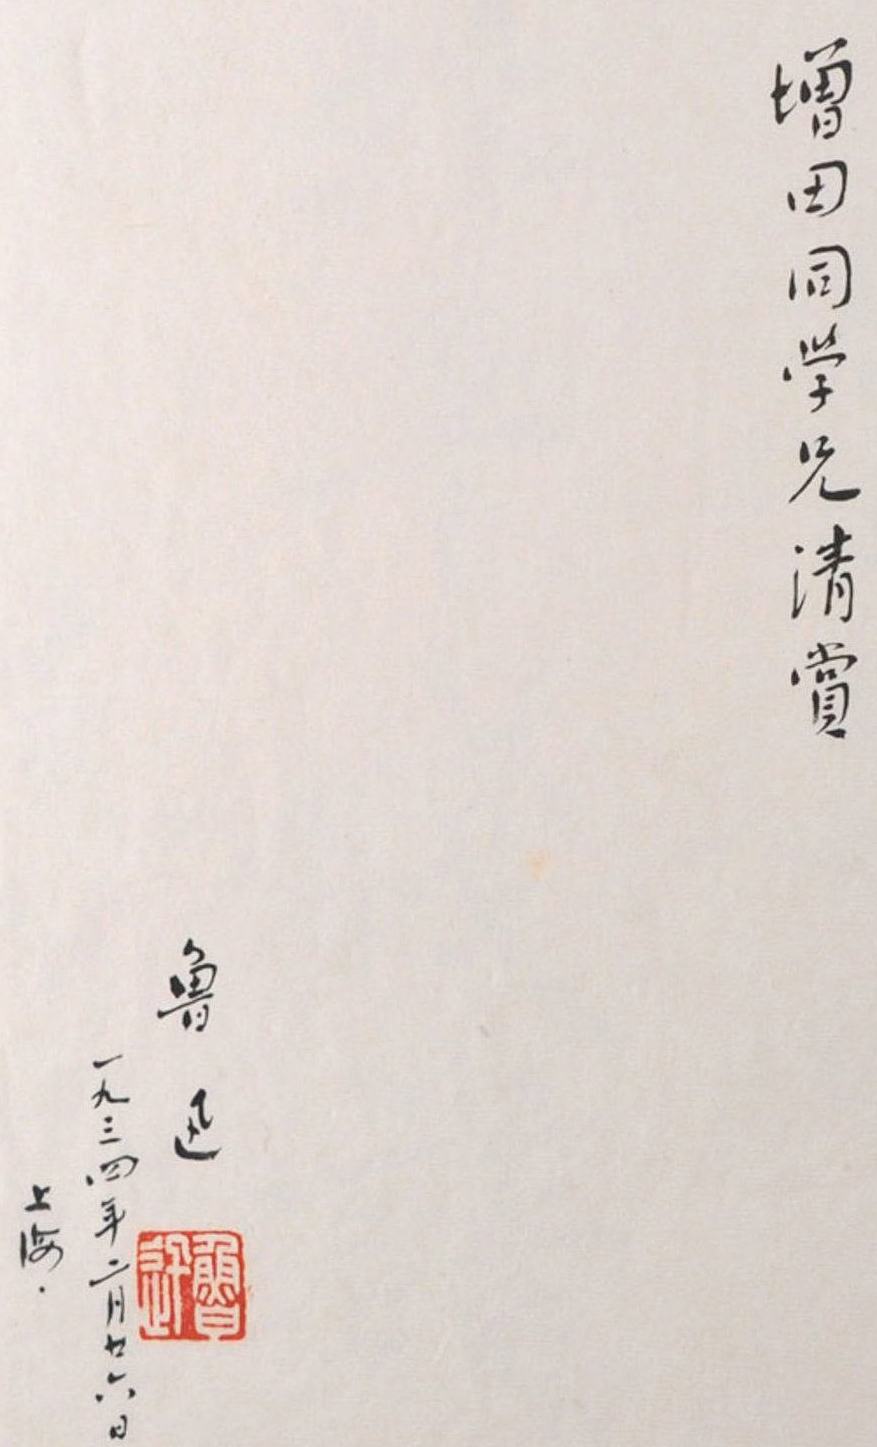 增田同学兄清賞
魯迅
魯迅
一九三四年二月廿六日
上海.